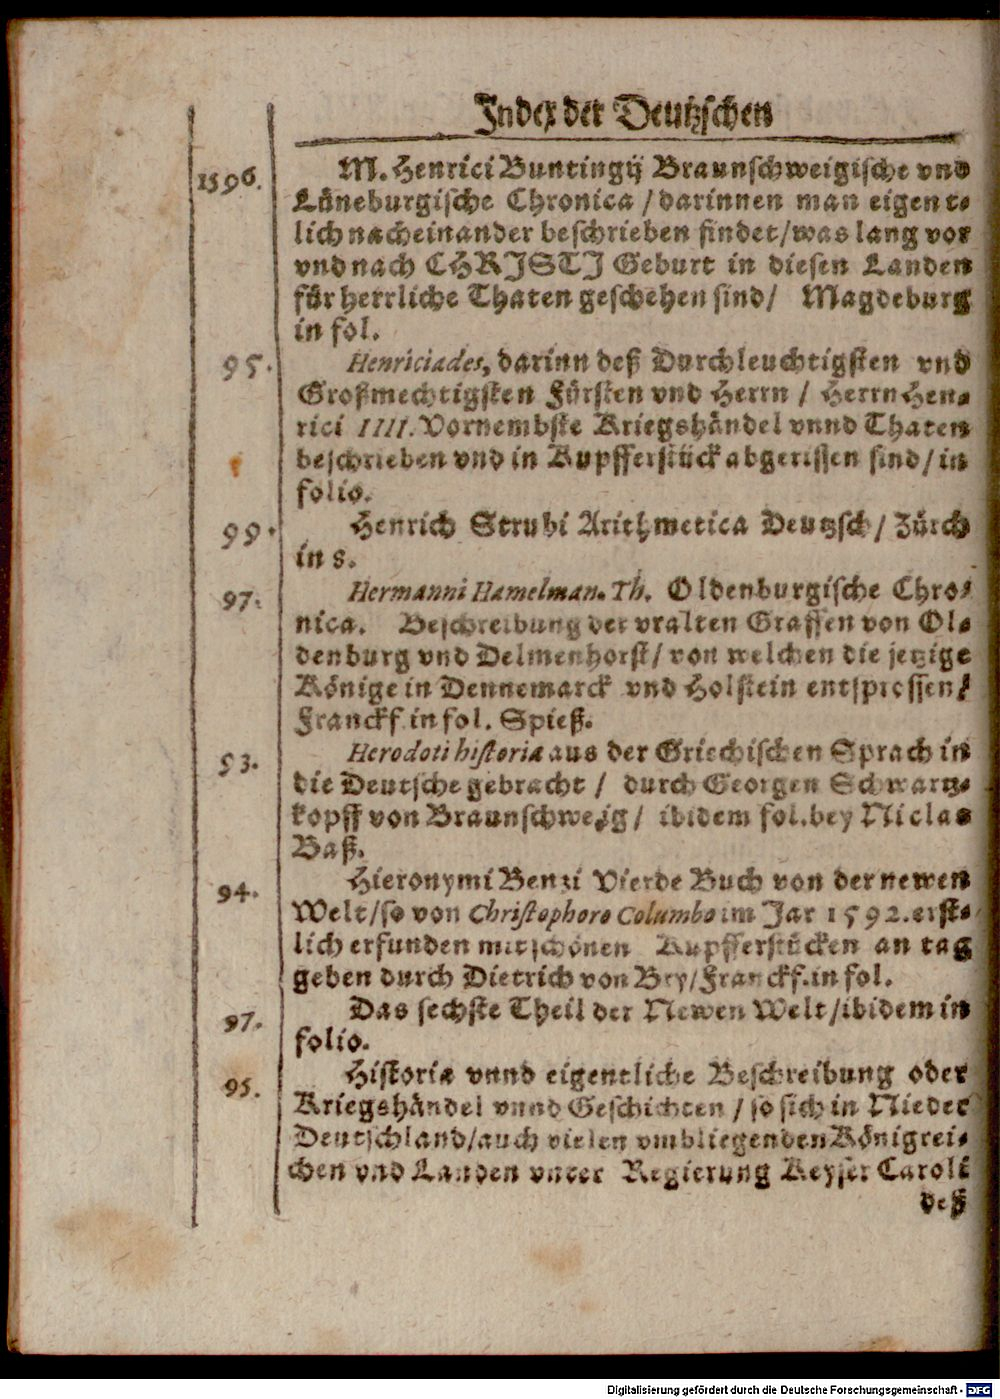 Index der Deutzschen
1596. M. Henrici Buntingij Braunschweigische vnd
Lüneburgische Chronica / darinnen man eigent-
lich nacheinander beschrieben findet/was lang vor
vnd nach CHRISTI Geburt in diesen Landen
für herrliche Thaten geschehen sind/ Magdeburg
in fol.
95. Henriciades, darinn deß Durchleuchtigsten vnd
Großmechtigsten Fürsten vnd Herrn / Herrn Hen-
rici IIII. Vornembste Kriegshändel vnnd Thaten
beschrieben vnd in Kupfferstück abgerissen sind/in
folio.
99. Henrich Strubi Arithmetica Deutzsch/ Zürch
in 8.
97. Hermanni Hamelman. Th. Oldenburgische Chro-
nica. Beschreibung der vralten Graffen von Ol-
denburg vnd Delmenhorst/ von welchen die jetzige
Könige in Dennemarck vnd Holstein entsprossen/
Franckf. in fol. Spieß.
93. Herodoti historia aus der Griechischen Sprach in
die Deutsche gebracht / durch Georgen Schwartz-
kopff von Braunschweig/ ibidem fol. bey Niclas
Baß.
94. Hieronymi Benzi Vierde Buch von der newen
Welt/so von Christophoro Columbo im Jar 1592. erst-
lich erfunden mit schönen Kupfferstücken an tag
geben durch Dietrich von Bry/Franckf. in fol.
97. Das sechste Theil der Newen Welt/ibidem in
folio.
95. Historia vnnd eigentliche Beschreibung oder
Kriegshändel vnnd Geschichten / so sich in Nieder
Deutschland/auch vielen vmbliegenden Königrei-
chen vnd Landen vnter Regierung Keyser Caroli
deß
Digitalisierung gefördert durch die Deutsche Forschungsgemeinschaft - DFG